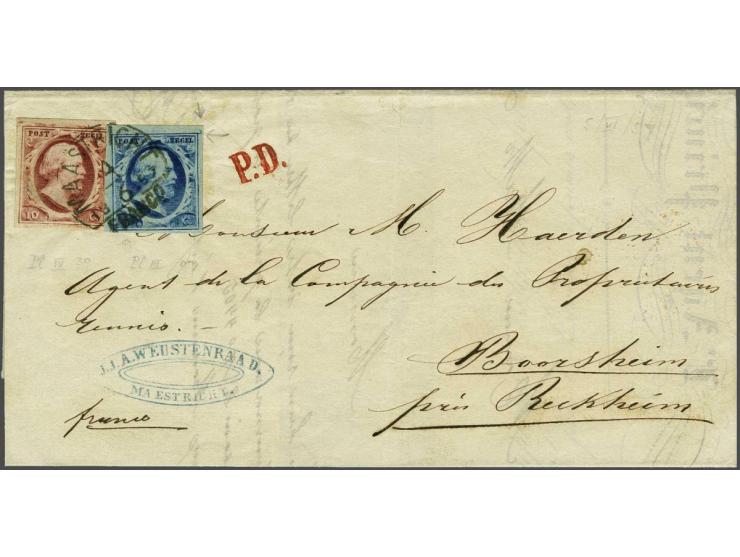 POST ZEGEL
10 C
POST ZEGEL
5 C
MAASTRICHT
FRANCO
P.D.
5/VI 57
Pl IV 38
Pl III
Monsieur M. Haerden
Agent de la Compagnie des Propriétaires
Réunis. —
Boorsheim
près Reckheim
J.J.A. WEUSTENRAAD.
MAESTRICHT.
franco